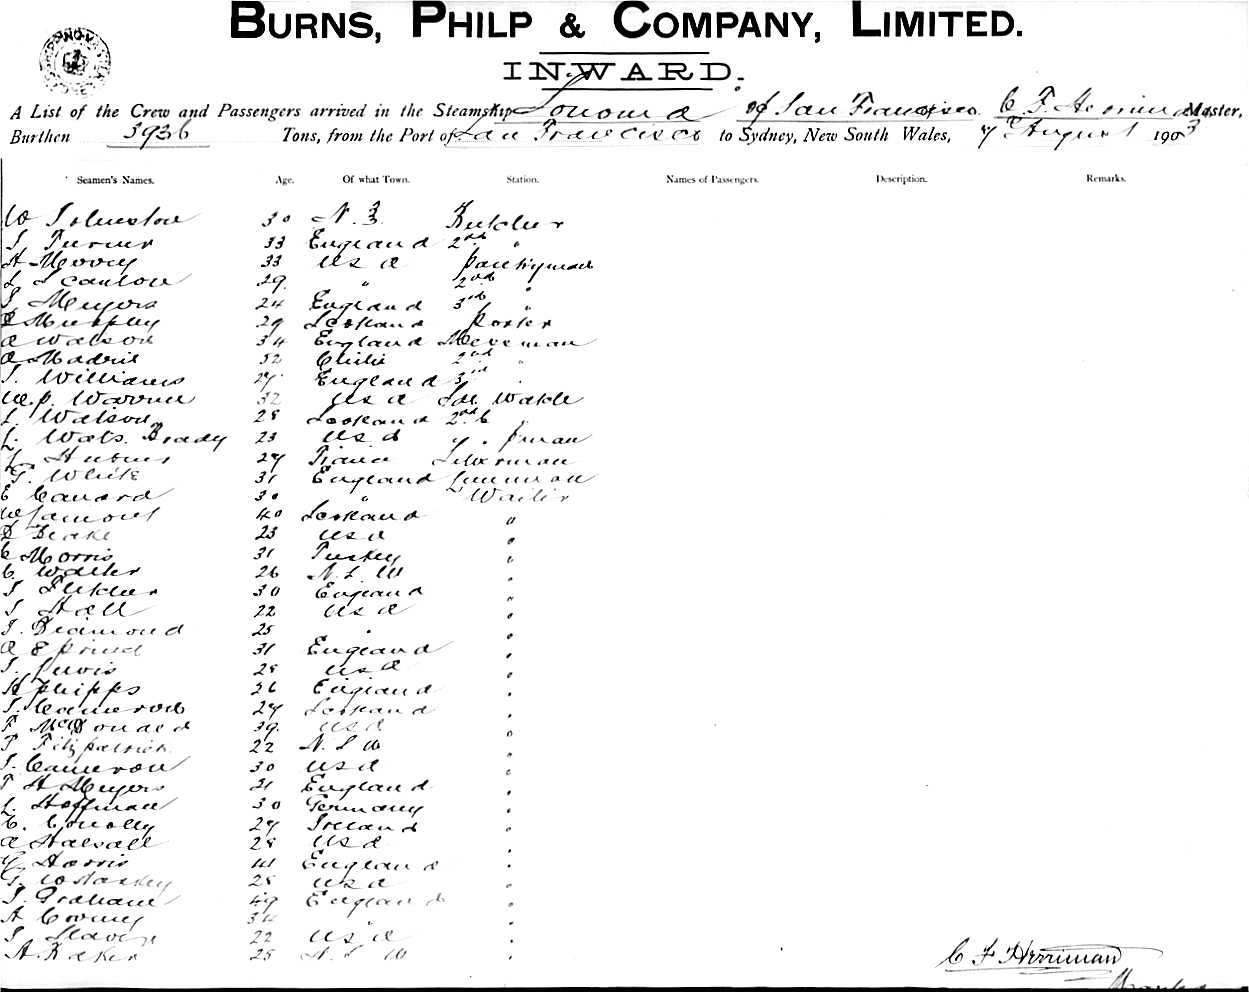 BURNS, PHILP & COMPANY, LIMITED.
INWARD.
A List of the Crew and Passengers arrived in the Steamship Sonoma of San Francisco C F Herriman Master,
Burthen 3936 Tons, from the Port of San Francisco to Sydney, New South Wales, 7 August 1903
Seamen's Names. Age. Of what Town. Station. Names of Passengers. Description. Remarks.
W Johnston 30 N. Z. Butcher
J Turner 33 England 2nd "
H 33 U S A Pantryman
J Scanlon 29 " 2nd "
J Meyers 24 England 3rd "
Murphy 29 Scotland Porter
A Watson 34 England Messman
A Madril 32 Chile 2nd "
J. Williams 27 England 3rd "
W. P. Warren 32 U S A
J. Watson 28 Scotland 2nd
J. Brady 23 U S A
27 Silverman
G. White 31 England
E 30 " Waiter
W Lamont 40 Scotland "
23 U S A "
C Morris 31 Turkey "
C Walter 26 N. S. W "
J Fletcher 30 England "
J Hall 22 U S A "
J. Diamond 25 " "
A 31 England "
J. Lewis 28 U S A "
H Phipps 26 England "
J. Cameron 27 Scotland "
F McDonald 39 U S A "
T Fitzpatrick 22 N. S W "
J. Cameron 30 U S A "
F H Meyers 21 England "
J. Hoffman 30 Germany "
C. Conolly 27 Ireland "
A Halsall 28 U S A "
G Harris 41 England "
G. 28 U S A "
J. Graham 49 England "
A 34 " "
J 22 U S A "
A. Baker 25 N. S W "
C F Herriman